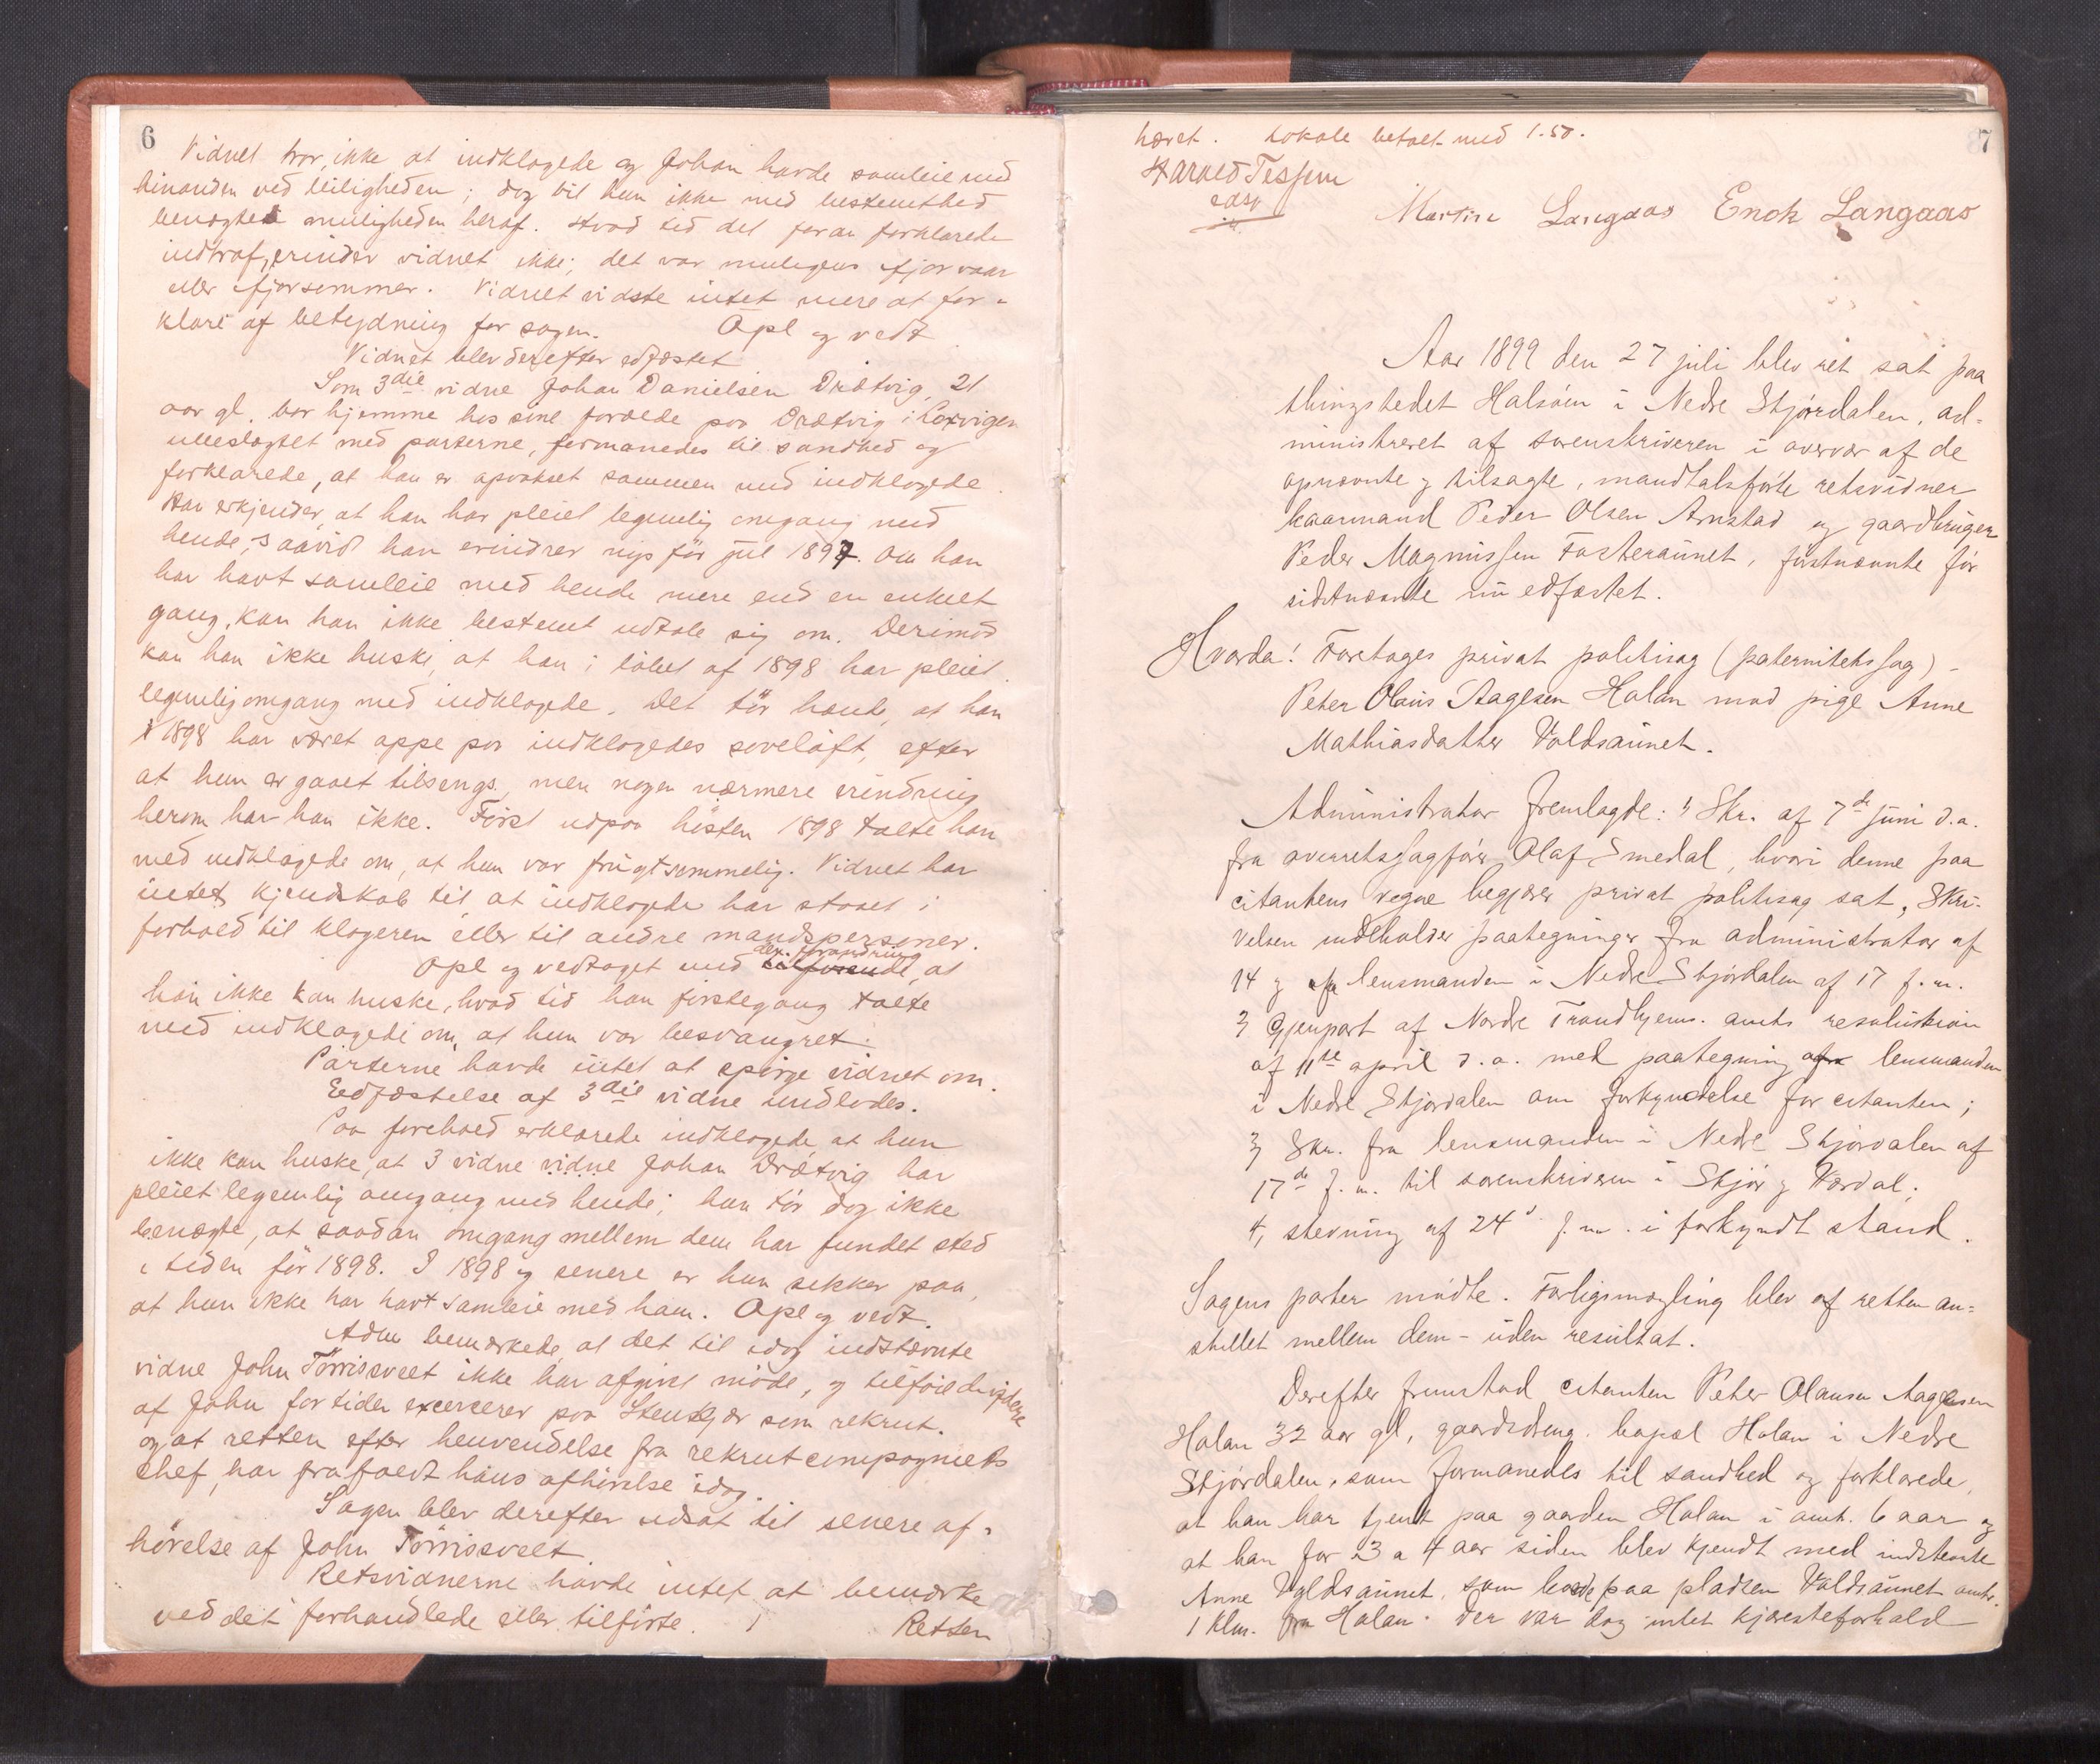 6
Vidnet tror ikke at indklagede og Johan havde samleie med
hinanden ved leiligheden; dog vil hun ikke med bestemthed
benægte muligheden heraf. Hvad tid det foran forklarede
indtraf, erindrer vidnet ikke; det var muligens ifjor vaar
eller ifjor sommer. Vidnet vidste intet mere at for-
klare af betydning for sagen. Opl og vedt
Vidnet blev derefter edfæstet.
Som 3die vidne Johan Danielsen Drætvig, 21
aar gl. bor hjemme hos sine forælde paa Drætvig i
ubeslægtet med parterne, formanedes til sandhed og
forklarede, at han er opvokset sammen med indklagede.
Han erkjender, at han har pleiet legemlig omgang med
hende, saavidt han erindrer nys før jul 1897. Om han
har havt samleie med hende mere end en enkelt
gang, kan han ikke bestemt udtale sig om. Derimod
kan han ikke huske, at han i løbet af 1898 har pleiet
legemlig omgang med indklagede. Det tør hænde, at han
i 1898 har været oppe paa indklagedes soveloft, efter
at hun er gaaet tilsengs, men nogen nærmere erindring
herom har han ikke. Først udpaa høsten 1898 talte han
med indklagede om, at hun var frugtsommelig. Vidnet har
intet kjendskab til, at indklagede har staaet i
forhold til klageren eller til andre mandspersoner.
den forandring
Opl og vedtaget med tilføiende, at
han ikke kan huske, hvad tid han førstegang talte
med indklagede om, at hun var besvangret.
Parterne havde intet at spørge vidnet om.
Eedfæstelse af 3die vidne undlodes.
Paa forehold erklærede indklagede, at hun
ikke kan huske, at 3 vidne vidne Johan Drætvig har
pleiet legemlig omgang med hende; hun tør dog ikke
benægte, at saadan omgang mellem dem har fundet sted
i tiden før 1898. I 1898 og senere er hun sikker paa,
at hun ikke har havt samleie med ham. Opl og vedt.
Adm bemærkede, at det til idag indstævnte
vidne John Tørrissveet ikke har afgivet møde, og tilføiedes
at John for tiden excercerer paa Stenkjær som rekrut.
og at retten efter henvendelse fra rekrutcompagniets
chef, har frafaldt hans afhørelse idag.
Sagen blev derefter udsat til senere af-
hørelse af John Tørrissveet.
Retsvidnerne havde intet at bemærke
ved det forhandlede eller tilførte. Retten
7
hævet. Lokale betalt med 1.50.
Harald Tessem
edsv
Martin Langaas Enok Langaas
Aar 1899 den 27 juli blev ret sat paa
thingstedet Halsøen i Nedre Stjørdalen, ad-
ministreret af sorenskriveren i overvær af de
opnævnte og tilsagte, mandtalsførte retsvidner
kaarmand Peder Olsen Arnstad og gaardbruger
Peder Magnussen Fosteraunet, førstnævnte før
sidstnævnte nu edfæstet.
Hvorda! Foretoges privat politisag (paternitetssag)
Peter Olaus Aagesen Holan mod pige Anne
Mathiasdatter Voldsaunet.
Administrator fremlagde: 1, Skr. af 7de juni d.a.
fra overretssagfører Olaf Smedal, hvori denne paa
citantens vegne begjærer privat politisag sat, Skri-
velsen indeholder paategninger fra administrator af
14 og fra lensmanden i Nedre Stjørdalen af 17 f.m.
2, Gjenpart af Nordre Trondhjems amts resolution
af 11te april d.a. med paategning fra lensmanden
i Nedre Stjørdalen om forkyndelse for citanten;
3, Skr. fra lensmanden i Nedre Stjørdalen af
17de f.m. til sorenskriveren i Stjør og Værdal;
4, stevning af 24d. f.m. i forkyndt stand.
Sagens parter mødte. Forligsmægling blev af retten an-
stillet mellem dem - uden resultat.
Derefter fremstod citanten Peter Olausen Aagesen
Holan 32 aar gl, gaardsdreng, bopæl Holan i Nedre
Stjørdalen, som formanedes til sandhed og forklarede,
at han har tjent paa gaarden Holan i omt. 6 aar og
at han for 3 a 4 aar siden blev kjendt med indstevnte
Anne Voldsaunet, som boede paa pladsen Voldsaunet omtr.
1 klm. fra Holan. Der var dog intet kjæresteforhold